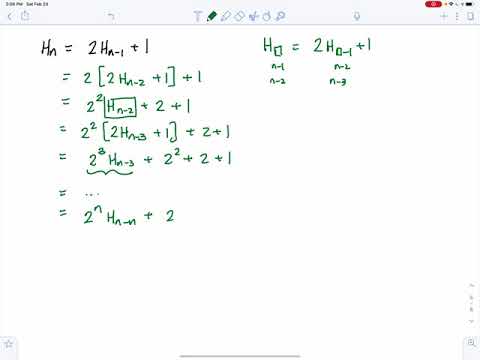 3:08 PM Sat Feb 23
Hₙ = 2Hₙ₋₁ + 1
= 2[2Hₙ₋₂ + 1] + 1
= 2² Hₙ₋₂ + 2 + 1
= 2² [2Hₙ₋₃ + 1] + 2 + 1
= 2³ Hₙ₋₃ + 2² + 2 + 1
= ...
= 2ⁿ Hₙ₋ₙ + 2
H□ = 2H□₋₁ + 1
n-1 n-2
n-2 n-3